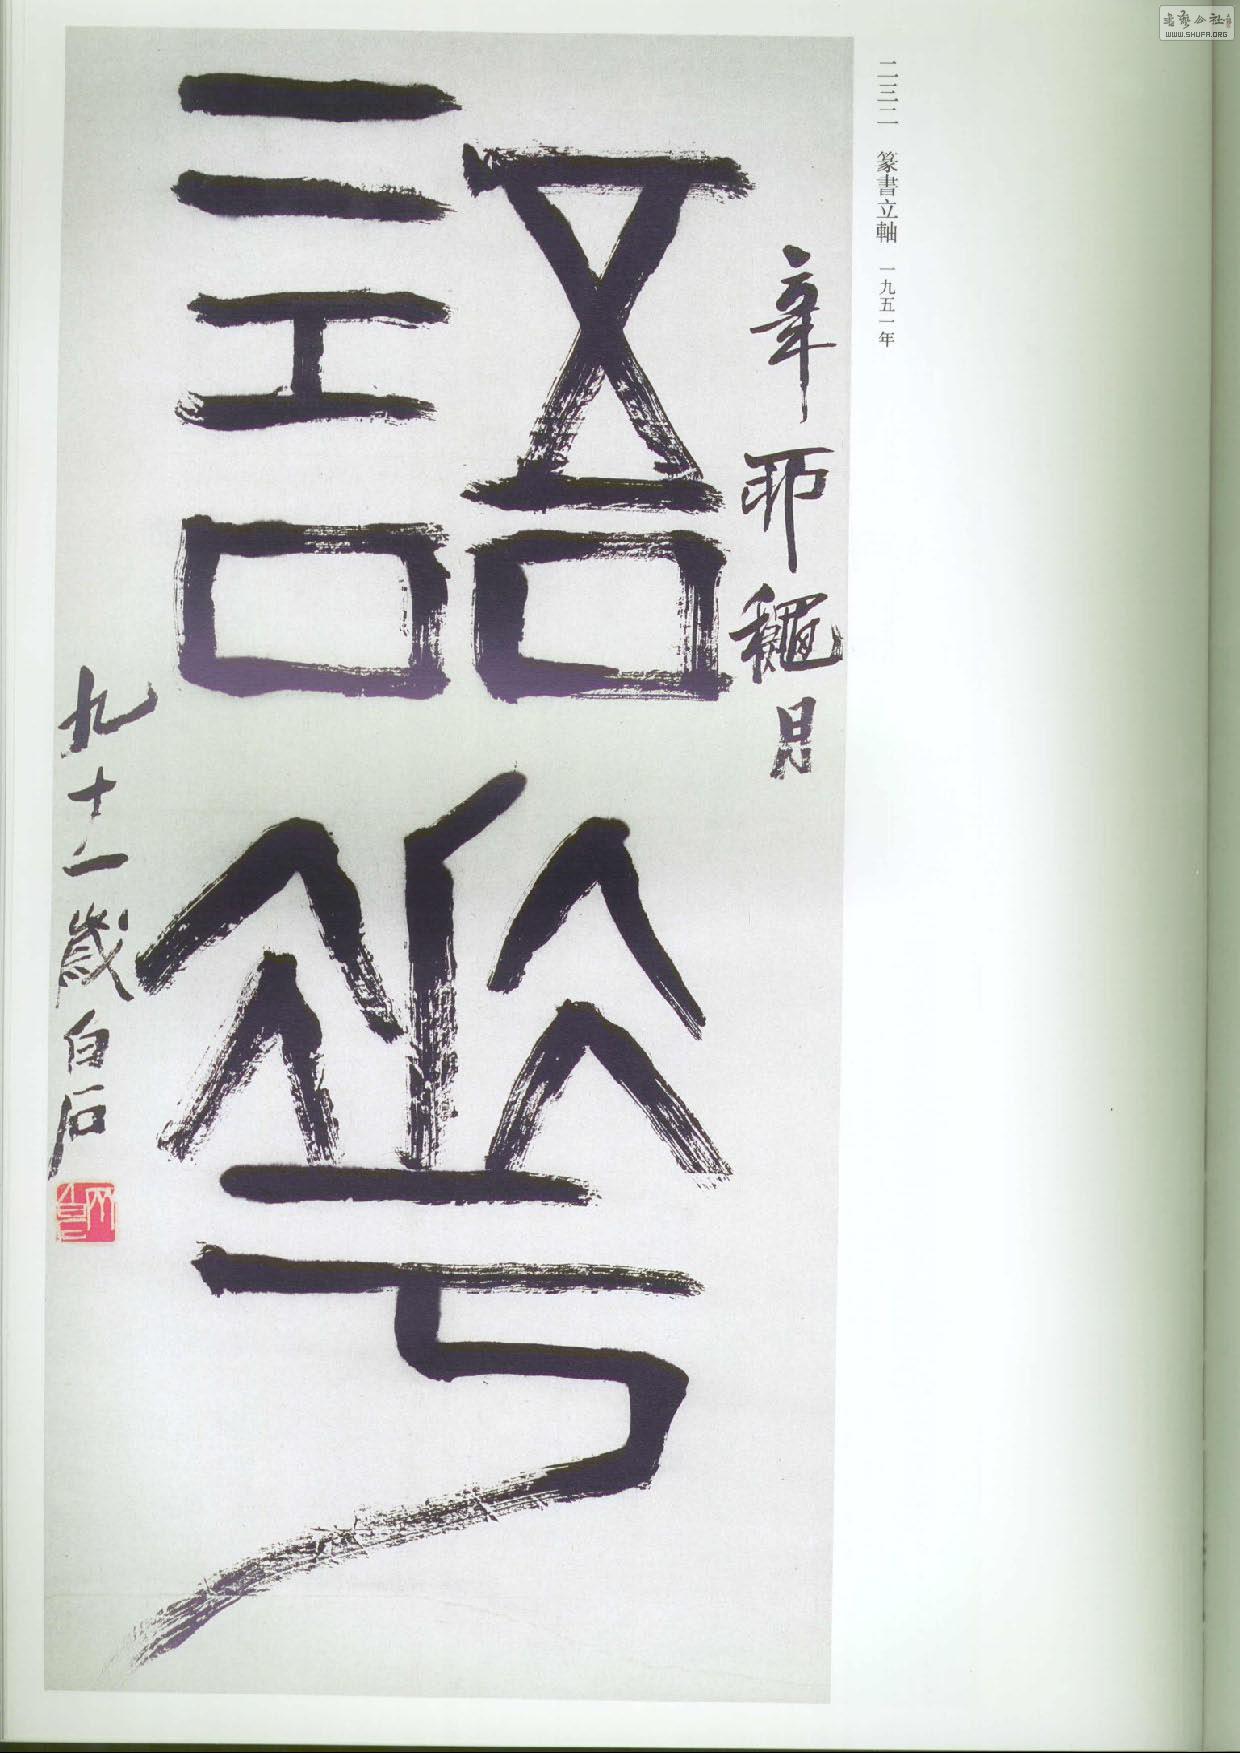 二三二 篆書立軸 一九五一年
辛卯龝月
語花
九十一歲白石
書藝公社
WWW.SHUFA.ORG